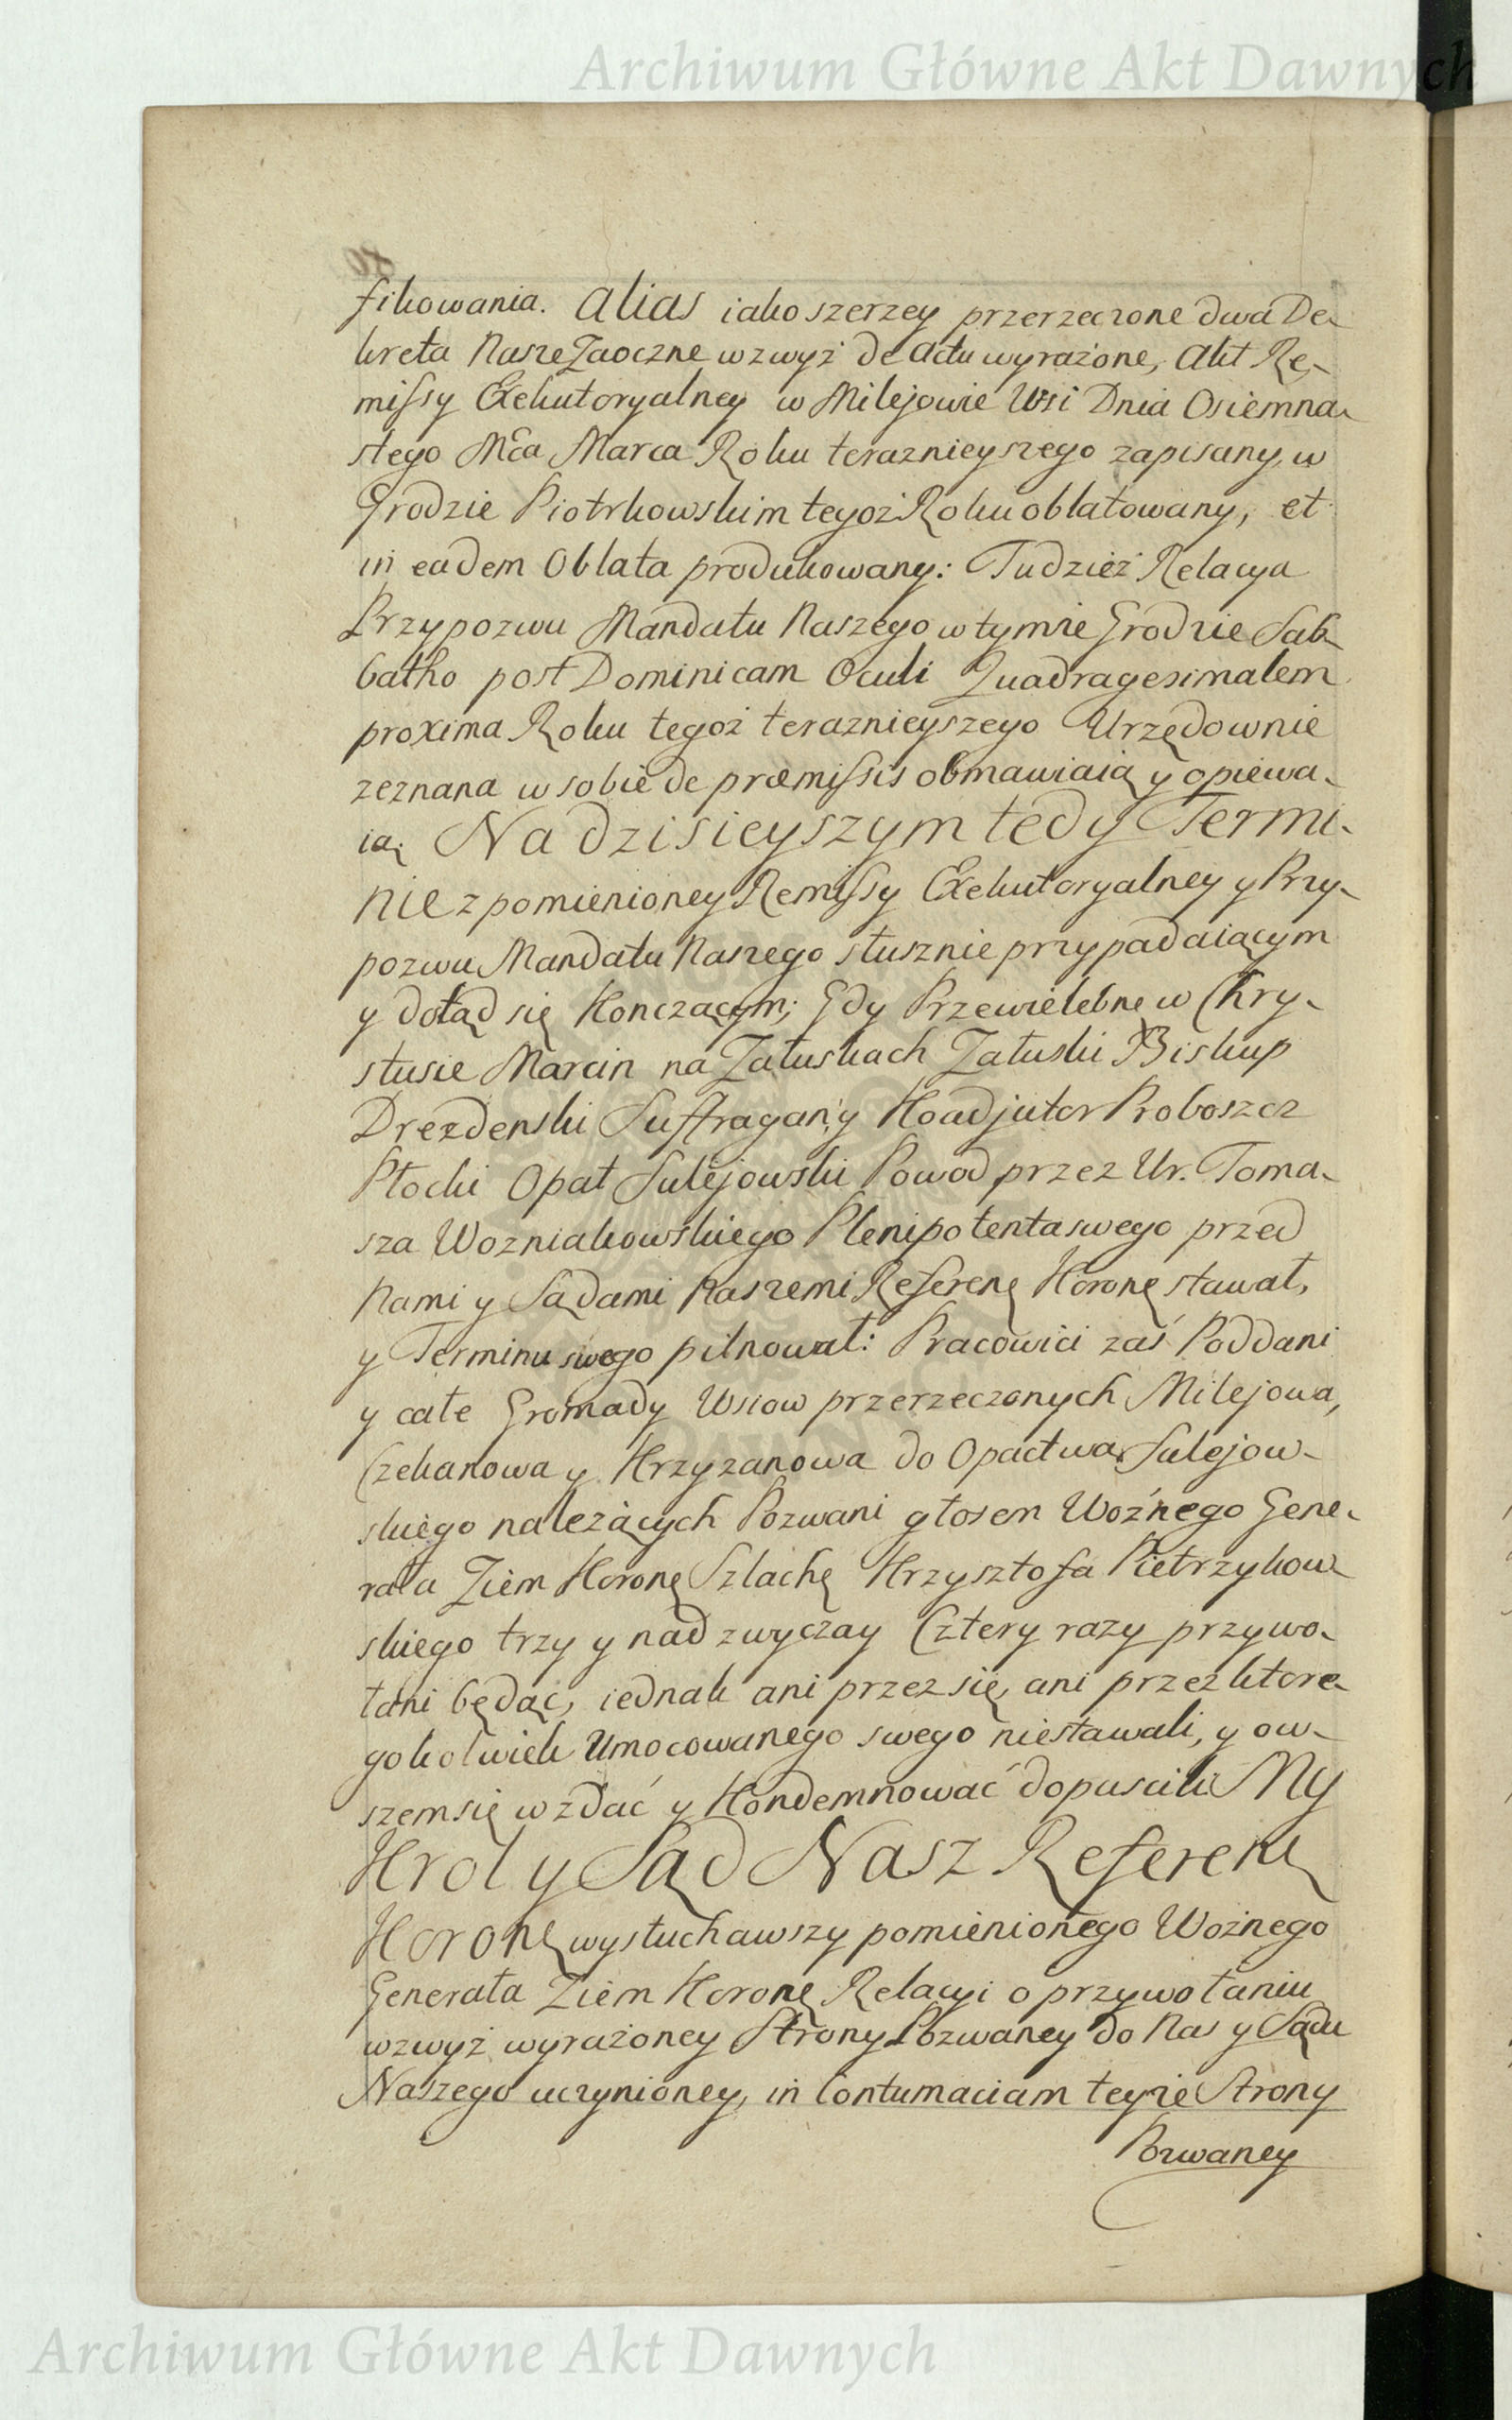 Archiwum Główne Akt Dawnych
fikowania. Alias iako szerzey przerzeczone dwa De-
kreta Nasze Zaoczne wzwyż de Actu wyrażone, Akt Re-
missy Exekutoryalney w Milejowie Wsi Dnia Osiemna-
stego Mca Marca Roku teraznieyszego zapisany, w
Grodzie Piotrkowskim tegoż Roku oblatowany, et
in eadem Oblata produkowany: Tudzież Relacya
Przypozwu Mandatu Naszego w tymże Grodzie Sab-
batho post Dominicam Oculi Quadragesimalem
proxima Roku tegoż teraznieyszego Urzędownie
zeznana w sobie de præmissis obmawiaią y opiewa-
ią. Na dzisieyszym tedy Termi-
nie z pomienioney Remissy Exekutoryalney y Przy-
pozwu Mandatu Naszego słusznie przypadaiącym
y dotąd się Konczącym; Gdy Przewielebne w Chry-
stusie Marcin na Załuskach Załuski Biskup
Drezdenski Suffragan, y Koadjutor Proboszcz
Płocki Opat Sulejowski Powod przez Ur. Toma-
sza Wozniakowskiego Plenipotenta swego przed
Nami y Sądami Naszemi Referenę Koronę stawał,
y Terminu swego pilnował: Pracowici zaś Poddani
y całe Gromady Wsiow przerzeczonych Milejowa,
Czekanowa y Krzyzanowa do Opactwa Sulejow-
skiego należących Pozwani głosem Woźnego Gene-
rała Ziem Koronę Szlachę Krzysztofa Pietrzykow-
skiego trzy y nad zwyczay Cztery razy przywo-
łani będąc, iednak ani przez się, ani przez ktore-
gokolwiek Umocowanego swego niestawali, y ow-
szem się wzdać y Kondemnować dopuscili My
Krol y Sąd Nasz Referenę
Koronę wysłuchawszy pomienionego Woźnego
Generała Ziem Koronę Relacyi o przywołaniu
wzwyż wyrażoney Strony Pozwaney do Nas y Sądu
Naszego uczynioney, in Contumaciam teyże Strony
Pozwaney
Archiwum Główne Akt Dawnych